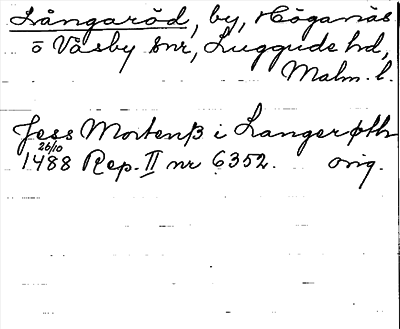 Långaröd, by, Höganäs
ö Väsby snr, Luggude hd,
Malm. l.
Jess Mortenß i Langerøth
26/10
1488 Rep. II nr 6352. orig.